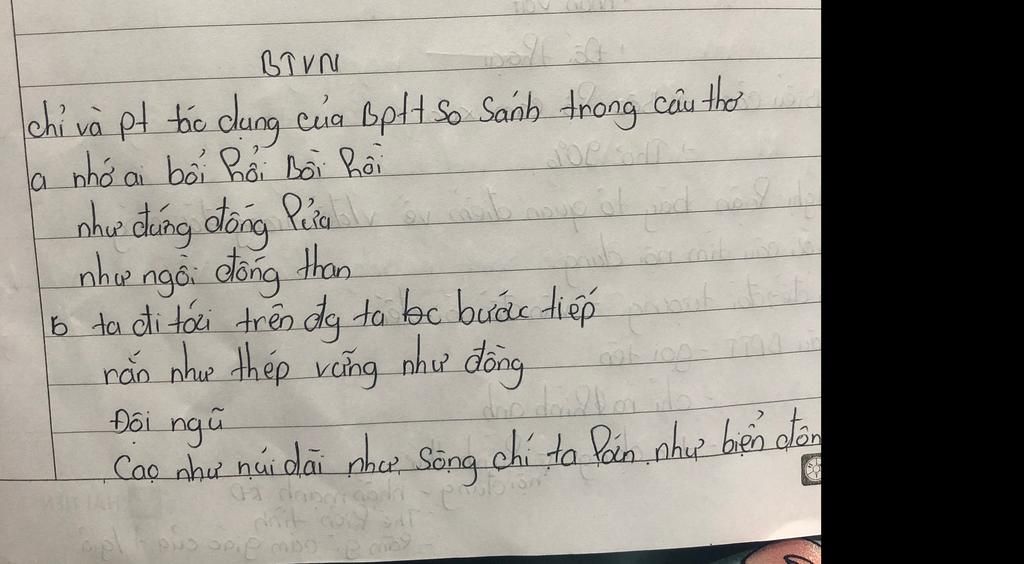 BTVN
chỉ và pt tác dụng của Bptt So Sánh trong câu thơ
a nhớ ai bổi hổi bồi hồi
như đứng đống lửa
như ngồi đống than
b ta đi tới trên đg ta bc bước tiếp
rắn như thép vững như đồng
Đội ngũ
Cao như núi dài như sông chí ta lớn như biển đôn